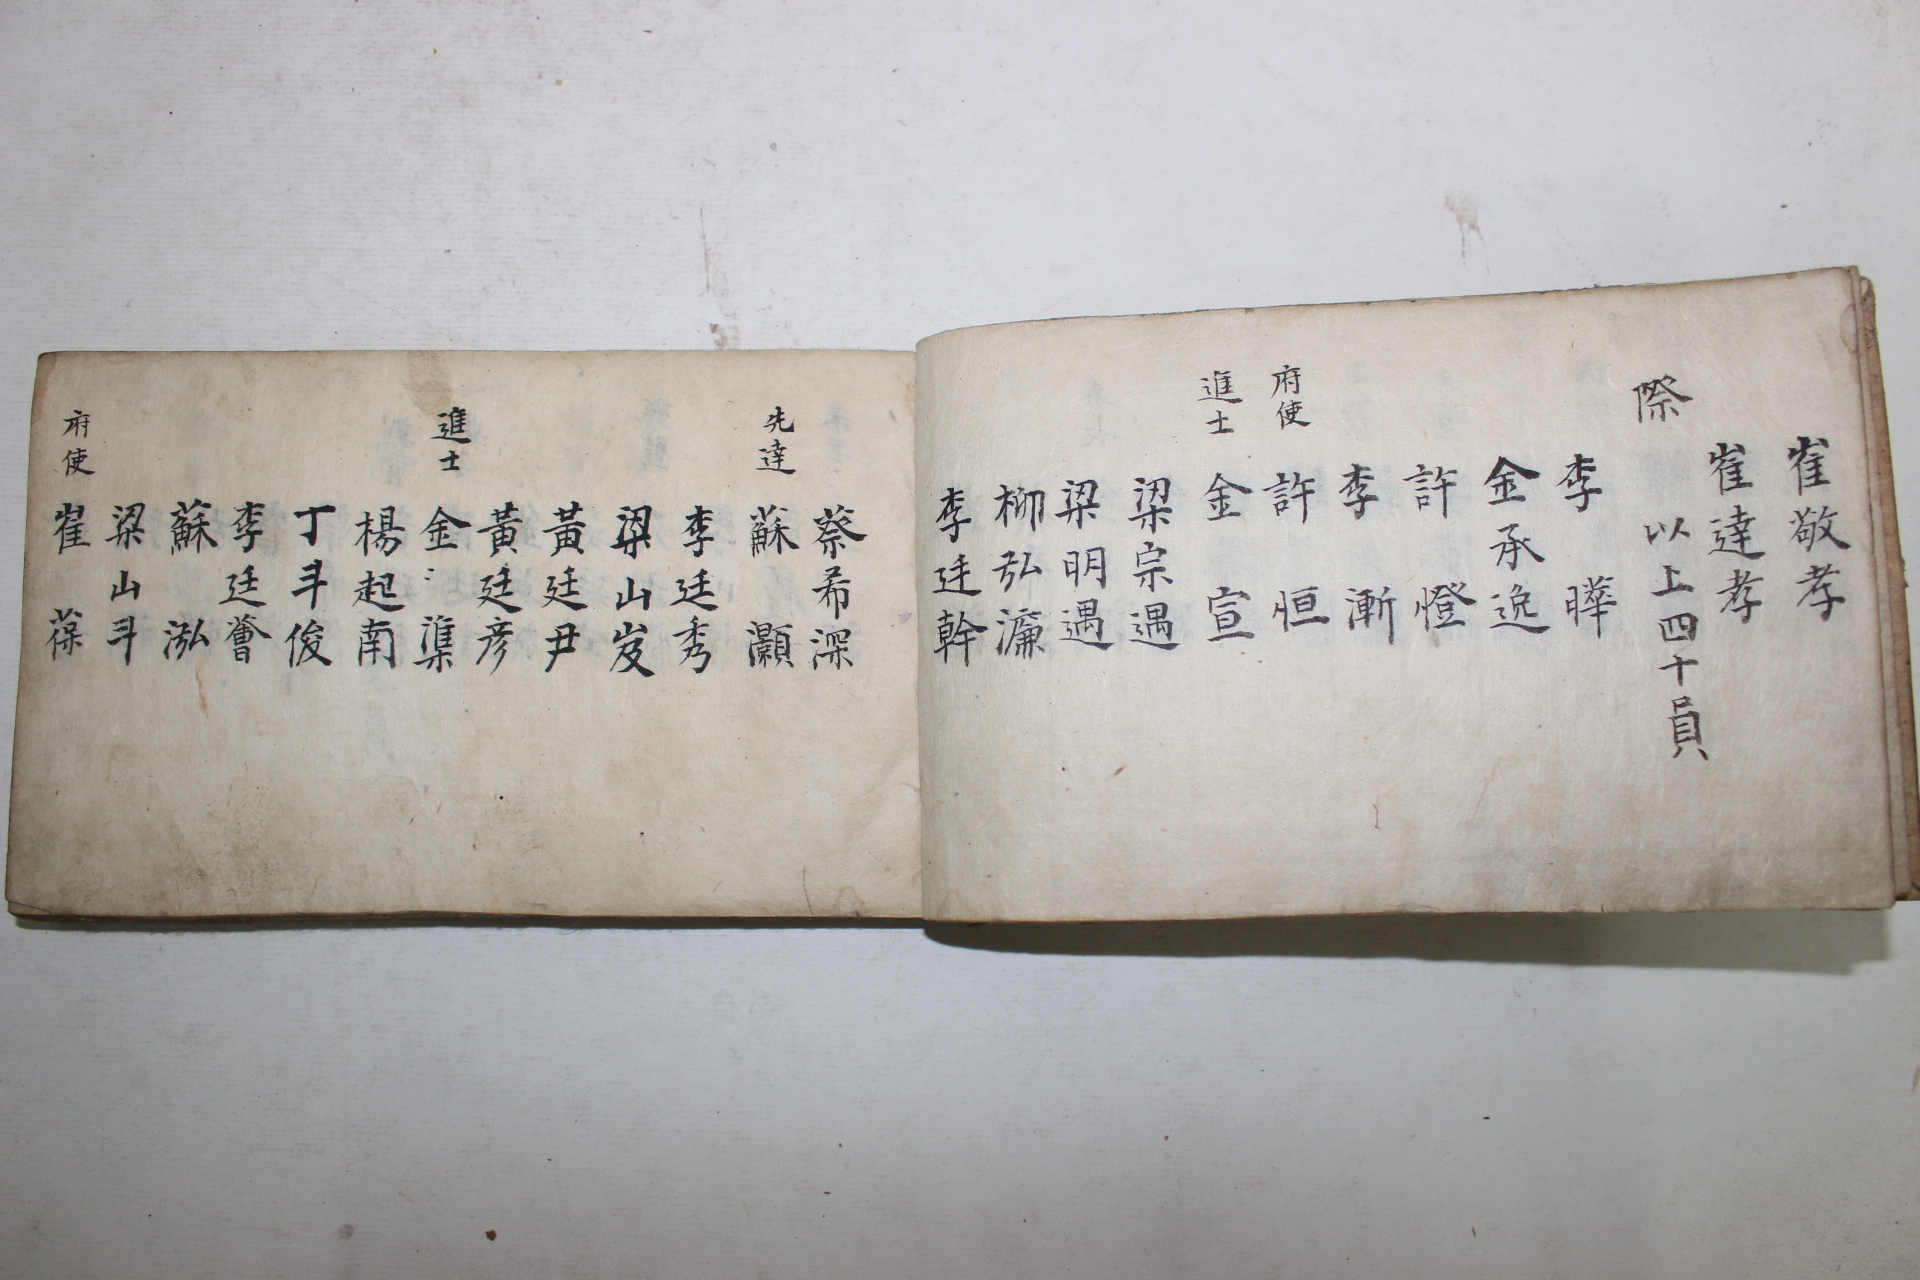 崔敬孝
崔達孝
際 以上四十員
李曄
金承逸
許憕
李漸
府使 許恒
進士 金宣
梁宗遇
梁明遇
柳弘濂
李廷幹
蔡希深
先達 蘇灝
李廷秀
梁山岌
黃廷尹
黃廷彦
進士 金潗
楊起南
丁斗俊
李廷薈
蘇泓
梁山斗
府使 崔葆